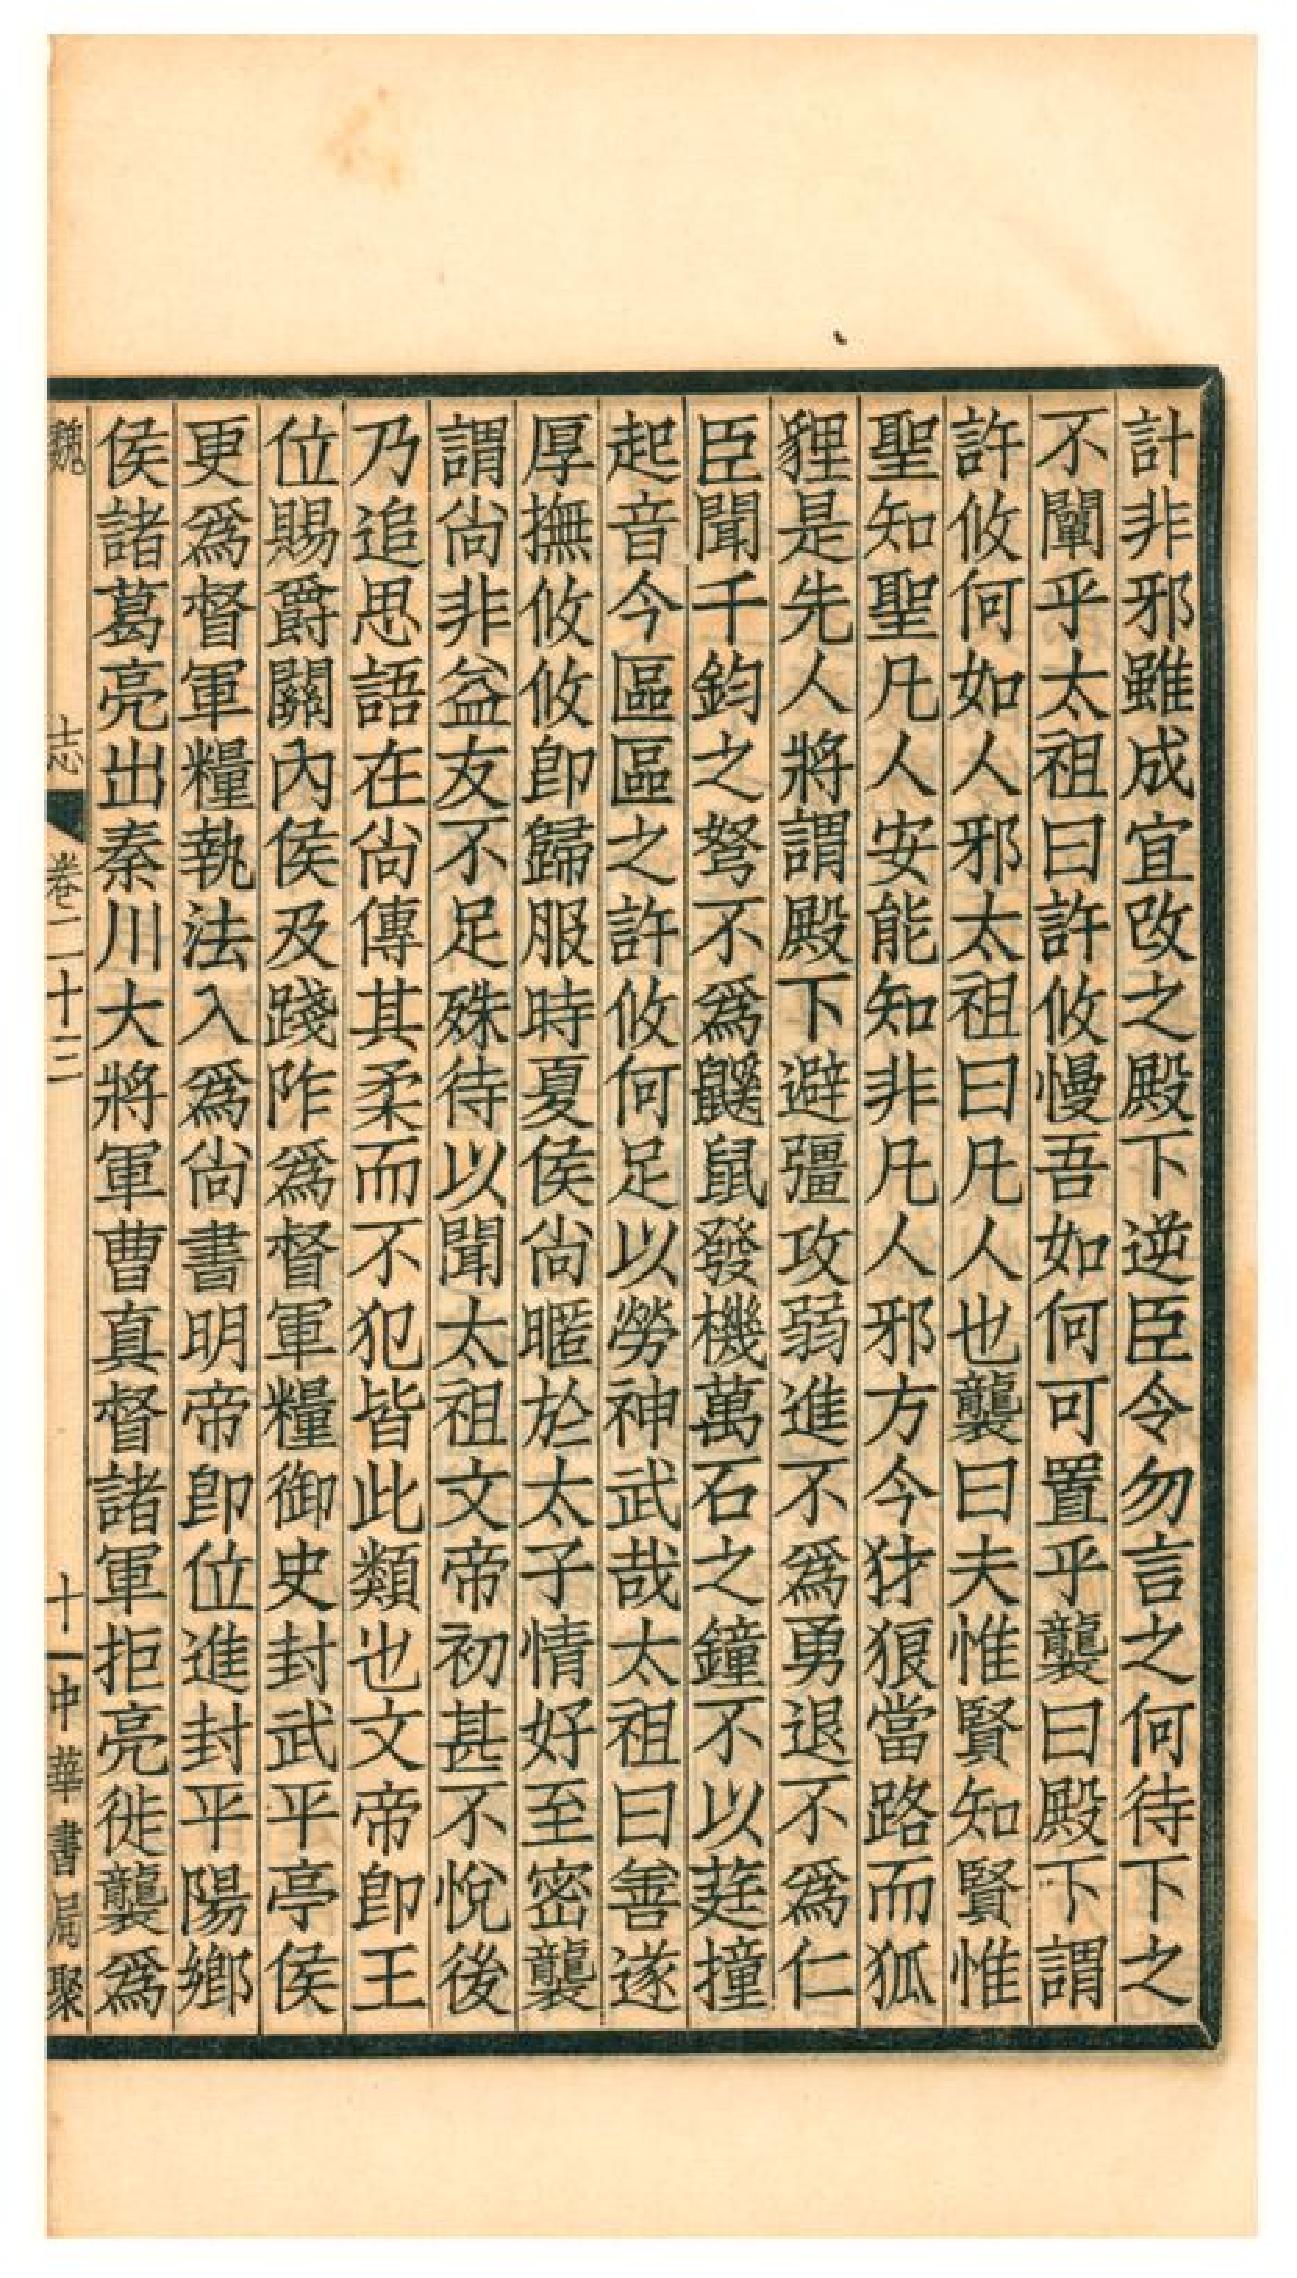 計非邪雖成宜改之殿下逆臣令勿言之何待下之
不闡乎太祖曰許攸慢吾如何可置乎襲曰殿下謂
許攸何如人邪太祖曰凡人也襲曰夫惟賢知賢惟
聖知聖凡人安能知非凡人邪方今豺狼當路而狐
狸是先人將謂殿下避彊攻弱進不爲勇退不爲仁
臣聞千鈞之弩不爲鼷鼠發機萬石之鐘不以莛撞
起音今區區之許攸何足以勞神武哉太祖曰善遂
厚撫攸攸卽歸服時夏侯尚暱於太子情好至密襲
謂尚非益友不足殊待以聞太祖文帝初甚不悅後
乃追思語在尚傳其柔而不犯皆此類也文帝卽王
位賜爵關內侯及踐阼爲督軍糧御史封武平亭侯
更爲督軍糧執法入爲尚書明帝卽位進封平陽鄉
侯諸葛亮出秦川大將軍曹真督諸軍拒亮徙襲爲
魏志 卷二十三 十一 中華書局聚